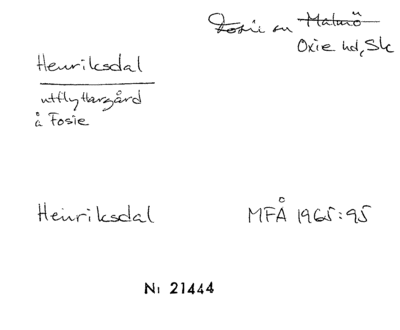 Fosie sn Malmö
Oxie hd, Sk
Henriksdal
utflyttargård
å Fosie
Henriksdal MFÅ 1965:95
Nr 21444